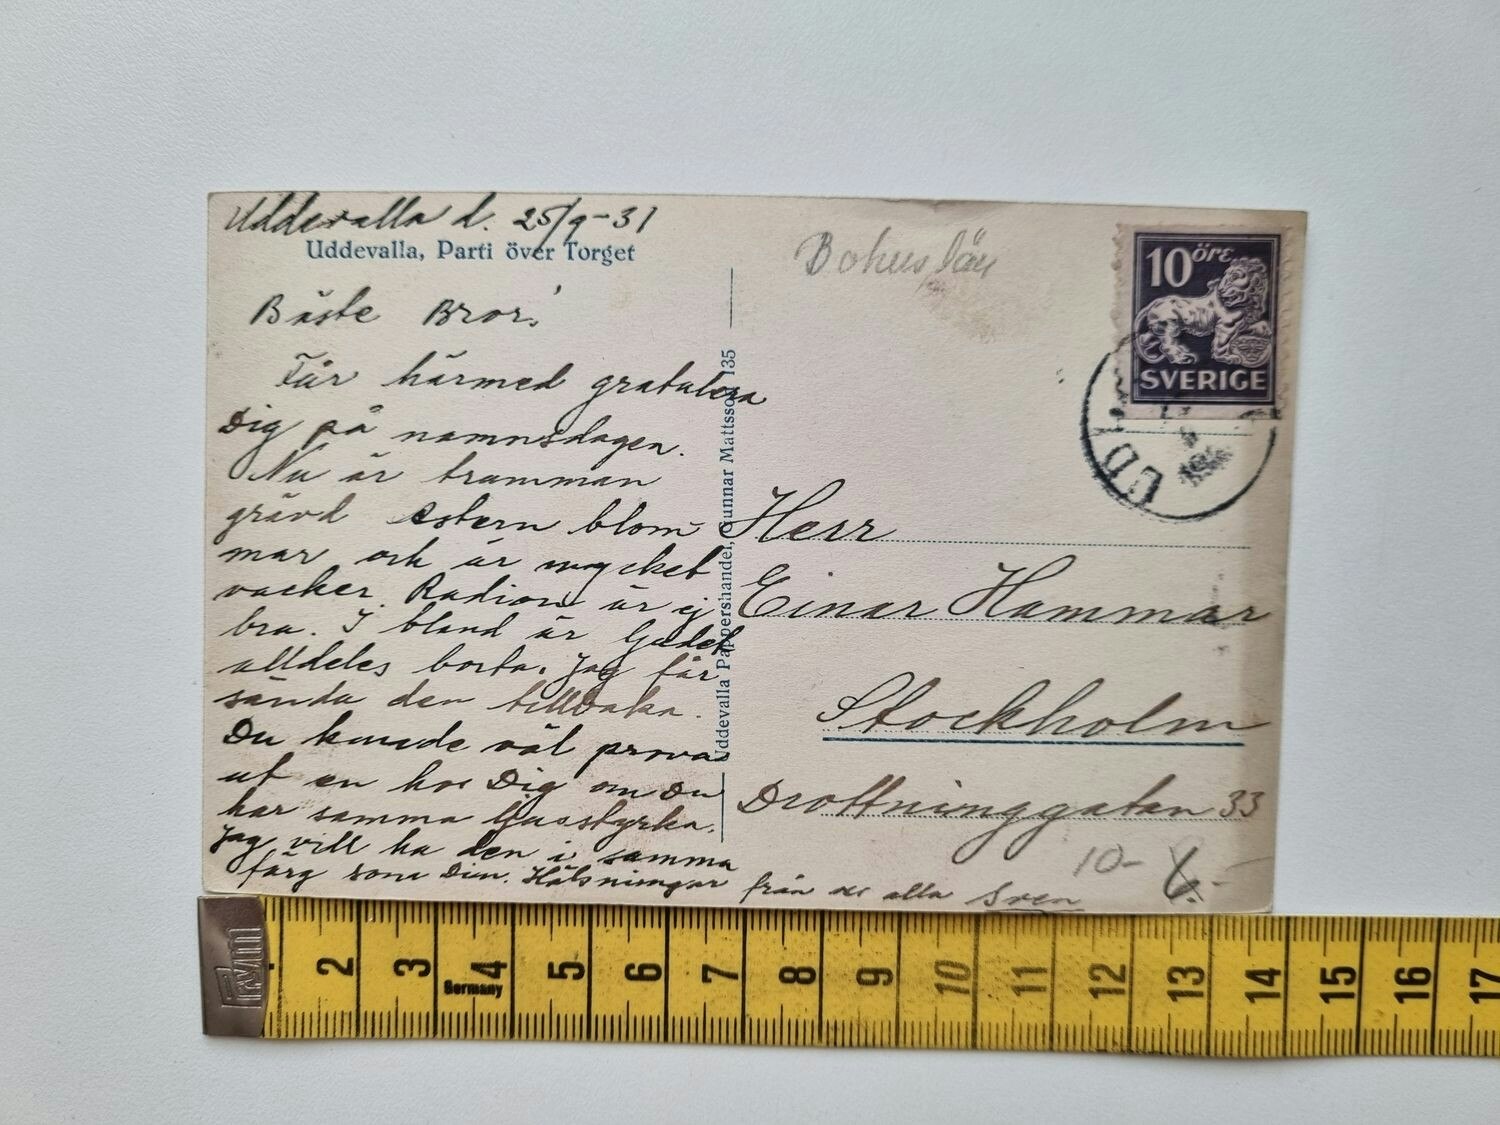 Uddevalla d. 25/9-31
Uddevalla, Parti över Torget
Bäste Bror!
Får härmed gratulera
Dig på namnsdagen.
Nu är
grävd astern blom-
mar och är mycket
vacker. Radion är ej
bra. I bland är ljudet
alldeles borta. Jag får
sända den tillbaka.
Du kunde väl prova
ut en hos Dig om Du
har samma ljusstyrka.
Jag vill ha den i samma
färg som Din. Hälsningar från oss alla Sven
Uddevalla Pappershandel, Gunnar Mattsson 135
Bohuslän
10 öre
SVERIGE
UD
Herr
Einar Hammar
Stockholm
Drottninggatan 33
10-
Prym
2 3 4 5 6 7 8 9 10 11 12 13 14 15 16 17
Germany